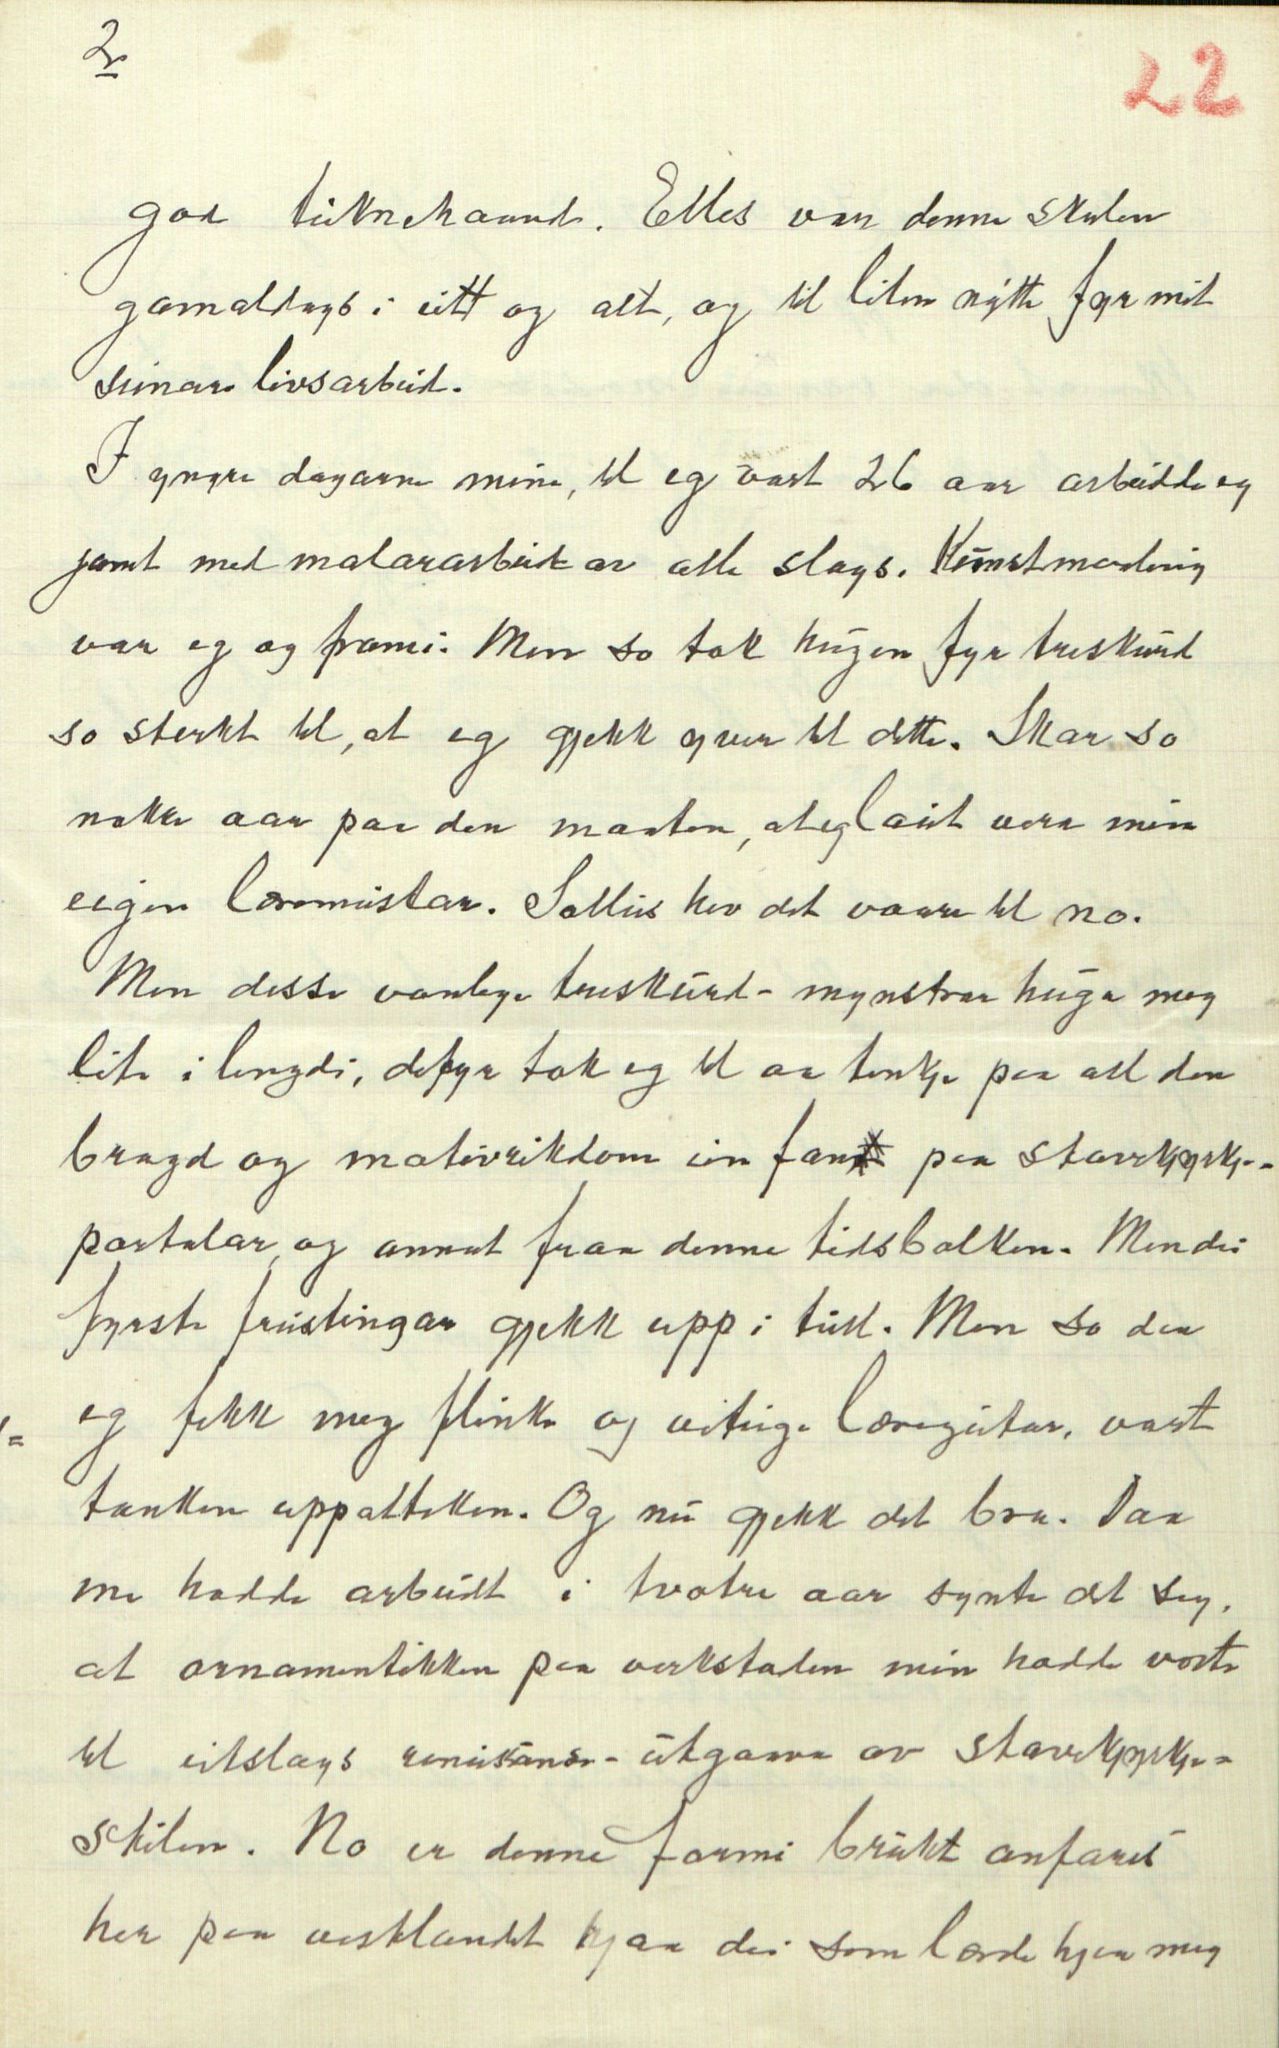 2
22
god teiknehaand. Elles var denne skulen
gamaldags i eitt og alt, og til liten nytte fyr mit
seinare livsarbeid.
I yngre dagarne mine, til eg vart 26 aar arbeidde eg
jamt med malararbeid av alle slags. Kunstmaaling
var eg og frami. Men so tok hugen fyr treskurd
so sterkt til, at eg gjekk yver til dette. Skar so
nokre aar paa den maaten, at eg laut vera min
eigen læremeistar. Solleis hev det vaare til no.
Men desse vanlege treskurd-mynstrar huga meg
lite i lengdi, difyr tok eg til aa tenkje paa all den
bragd og motivrikdom ein fann paa stavekyrkje-
portalar, og annat fraa denne tidsbolken. Men dei
fyrste freistingar gjekk upp i tull. Men so daa
eg fekk meg flinke og vituge læregutar, vart
tanken uppatteken. Og nu gjekk det bra. Daa
me hadde arbeidt i tvotri aar synte det seg,
at ornamentikken paa verkstaden min hadde vorte
til eitslags renaisanse-utgaava av stavekyrkje-
stilen. No er denne formi brukt onfares
her paa vestlandet hjaa dei som lærde hjaa meg